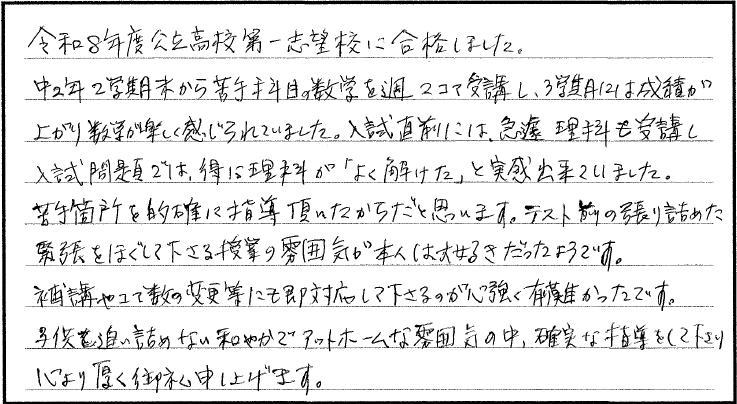 令和8年度公立高校第一志望校に合格しました。
中2年2学期末から苦手科目の数学を週2コマ受講し、3学期には成績が
上がり数学が楽しく感じられていました。入試直前には、急遽理科も受講し
入試問題では、得に理科が「よく解けた」と実感出来ていました。
苦手箇所を的確に指導頂いたからだと思います。テスト前の張り詰めた
緊張をほぐして下さる授業の雰囲気が本人は大好きだったようです。
補講やコマ数の変更等にも即対応して下さるのが心強く有難かったです。
子供を追い詰めない和やかでアットホームな雰囲気の中、確実な指導をして下さり
心より厚く御礼申し上げます。